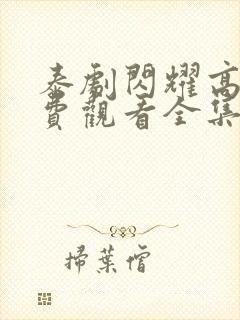 泰劇閃耀高
費觀看全集
掃葉僧